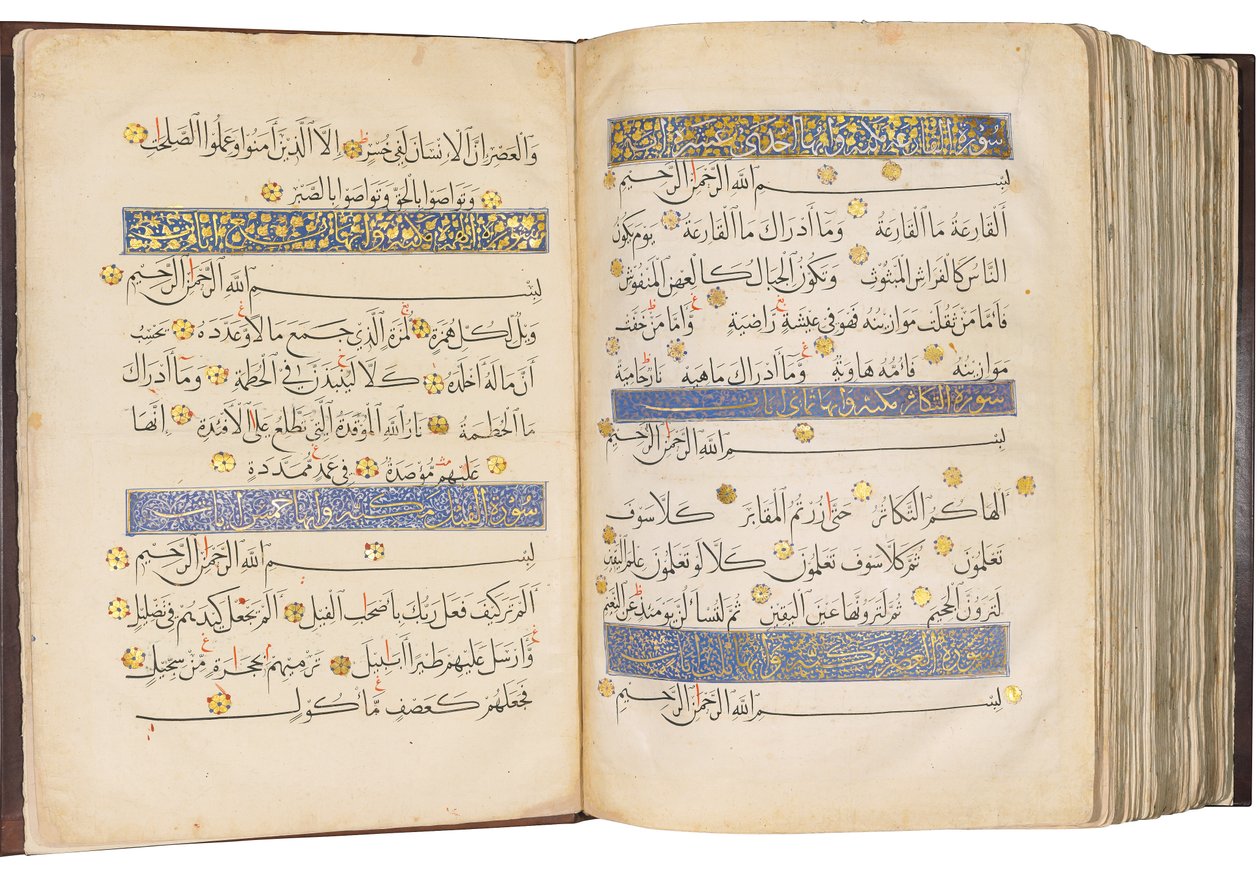 سورة القارعة مكية وايها احدى عشرة اية
بِسْمِ ٱللَّهِ ٱلرَّحْمَٰنِ ٱلرَّحِيمِ
أَلْقَارِعَةُ مَا ٱلْقَارِعَةُ وَمَا أَدْرَاكَ مَا ٱلْقَارِعَةُ يَوْمَ يَكُونُ
ٱلنَّاسُ كَٱلْفَرَاشِ ٱلْمَبْثُوثِ وَتَكُونُ ٱلْجِبَالُ كَٱلْعِهْنِ ٱلْمَنْفُوشِ
فَأَمَّا مَنْ ثَقُلَتْ مَوَازِينُهُ فَهُوَ فِي عِيشَةٍ رَّاضِيَةٍ وَأَمَّا مَنْ خَفَّتْ
مَوَازِينُهُ فَأُمُّهُ هَاوِيَةٌ وَّمَا أَدْرَاكَ مَاهِيَهْ نَارٌ حَامِيَةٌ
سورة التكاثر مكية وايها ثماني ايات
بِسْمِ ٱللَّهِ ٱلرَّحْمَٰنِ ٱلرَّحِيمِ
أَلْهَاكُمُ ٱلتَّكَاثُرُ حَتَّىٰ زُرْتُمُ ٱلْمَقَابِرَ كَلَّا سَوْفَ
تَعْلَمُونَ ثُمَّ كَلَّا سَوْفَ تَعْلَمُونَ كَلَّا لَوْ تَعْلَمُونَ عِلْمَ ٱلْيَقِينِ
لَتَرَوُنَّ ٱلْجَحِيمَ ثُمَّ لَتَرَوُنَّهَا عَيْنَ ٱلْيَقِينِ ثُمَّ لَتُسْأَلُنَّ يَوْمَئِذٍ عَنِ ٱلنَّعِيمِ
سورة العصر مكية وايها ثلث ايات
بِسْمِ ٱللَّهِ ٱلرَّحْمَٰنِ ٱلرَّحِيمِ
وَٱلْعَصْرِ إِنَّ ٱلْإِنْسَانَ لَفِي خُسْرٍ إِلَّا ٱلَّذِينَ أٰمَنُوا وَعَمِلُوا ٱلصَّٰلِحَٰتِ
وَتَوَاصَوْا بِٱلْحَقِّ وَتَوَاصَوْا بِٱلصَّبْرِ
سورة الهمزة مكية وايها تسع ايات
بِسْمِ ٱللَّهِ ٱلرَّحْمَٰنِ ٱلرَّحِيمِ
وَيْلٌ لِّكُلِّ هُمَزَةٍ لُّمَزَةٍ ٱلَّذِي جَمَعَ مَالًا وَّعَدَّدَهُ يَحْسَبُ
أَنَّ مَالَهُ أَخْلَدَهُ كَلَّا لَيُنْبَذَنَّ فِي ٱلْحُطَمَةِ وَمَا أَدْرَاكَ
مَا ٱلْحُطَمَةُ نَارُ ٱللَّهِ ٱلْمُوقَدَةُ ٱلَّتِي تَطَّلِعُ عَلَى ٱلْأَفْئِدَةِ إِنَّهَا
عَلَيْهِمْ مُّؤْصَدَةٌ فِي عَمَدٍ مُّمَدَّدَةٍ
سورة الفيل مكية وايها خمس ايات
بِسْمِ ٱللَّهِ ٱلرَّحْمَٰنِ ٱلرَّحِيمِ
أَلَمْ تَرَ كَيْفَ فَعَلَ رَبُّكَ بِأَصْحَٰبِ ٱلْفِيلِ أَلَمْ يَجْعَلْ كَيْدَهُمْ فِي تَضْلِيلٍ
وَّأَرْسَلَ عَلَيْهِمْ طَيْرًا أَبَابِيلَ تَرْمِيهِمْ بِحِجَارَةٍ مِّنْ سِجِّيلٍ
فَجَعَلَهُمْ كَعَصْفٍ مَّأْكُولٍ